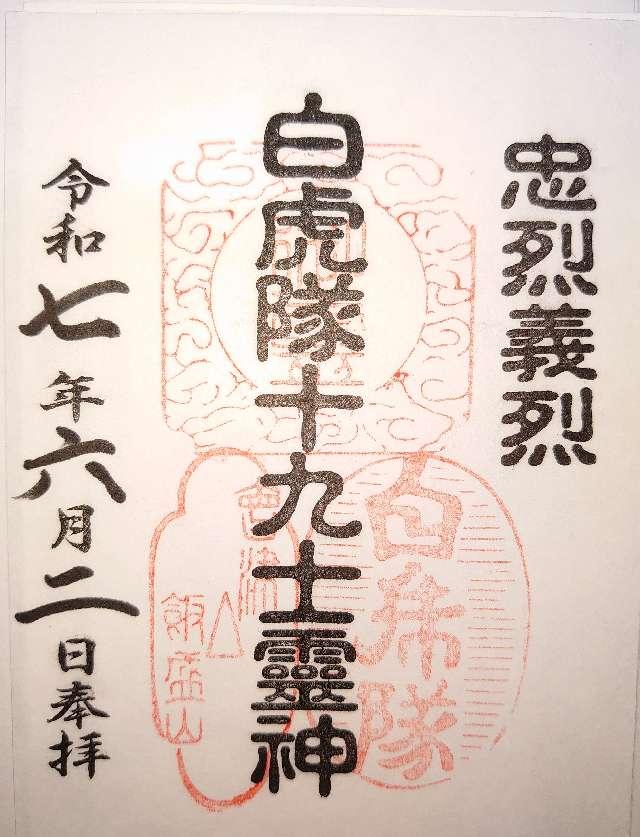 忠烈義烈
白虎隊十九士靈神
令和七年六月二日奉拝
白虎隊
会津
飯盛山